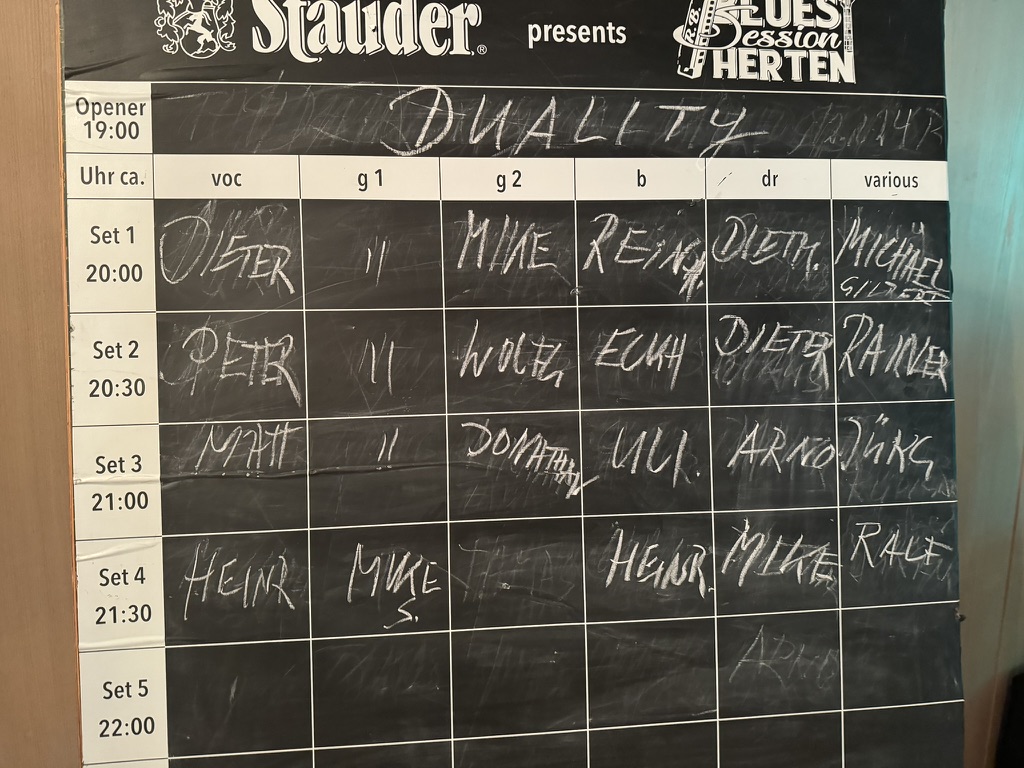 Stauder®
presents
BLUES
Session
HERTEN
Opener
19:00
DUALITY
Uhr ca. voc g 1 g 2 b dr various
Set 1
20:00
DIETER " MIKE REINH. DIETH. MICHAEL
Set 2
20:30
PETER " WOLFG. ECKH DIETER RAINER
Set 3
21:00
MATT " DONATHAN ULI. ARNO JÜRG
Set 4
21:30
HEINR MIKE HEINR. MIKE RALF
S.
Set 5
22:00